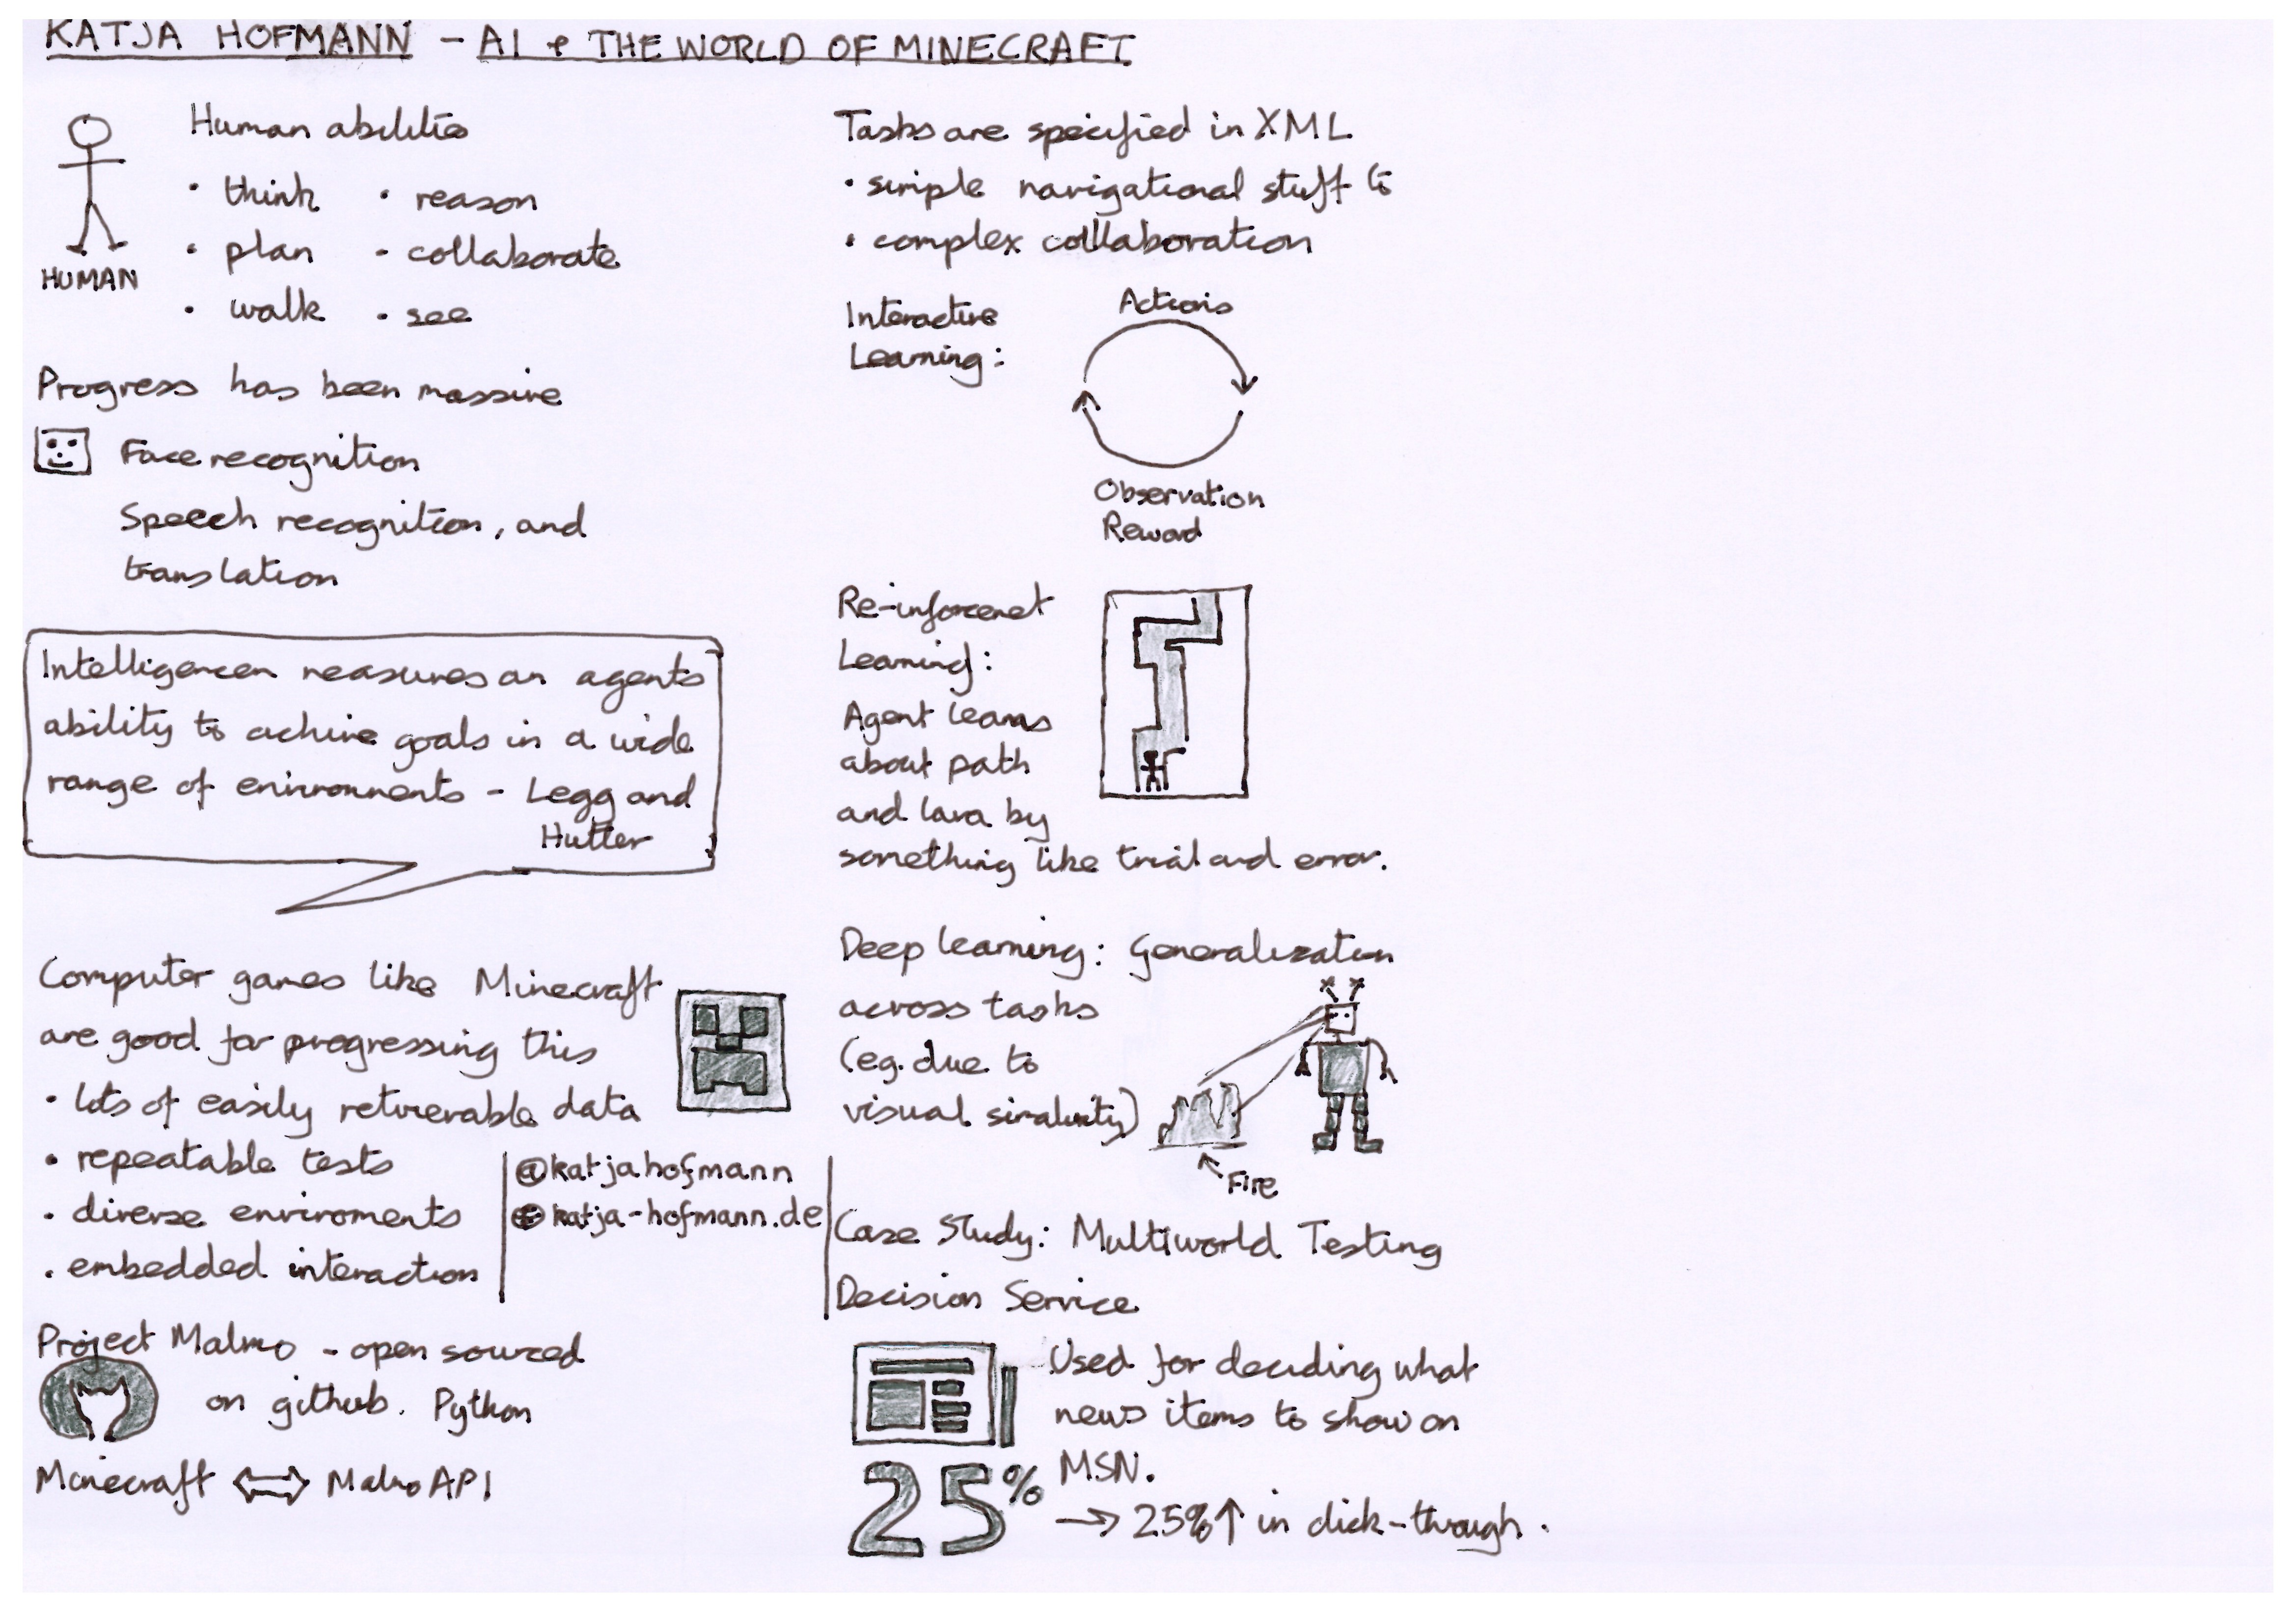 KATJA HOFMANN - AI & THE WORLD OF MINECRAFT
HUMAN
Human abilities
• think • reason
• plan • collaborate
• walk • see
Progress has been massive
Face recognition
Speech recognition, and
translation
Intelligencen measures an agents
ability to achive goals in a wide
range of enironments - Legg and
Hutter
Computer games like Minecraft
are good for progressing this
• lots of easily retrievable data
• repeatable tests
• diverse enviroments
• embedded interaction
@katjahofmann
katja-hofmann.de
Project Malmo - open sourced
on github. Python
Minecraft ⇔ Malmo API
Tasks are specified in XML
• simple navigational stuff to
• complex collaboration
Interactive
Learning:
Actions
Observation
Reward
Re-inforcenet
Learning:
Agent learns
about path
and lava by
something like trial and error.
Deep learning: Generalization
across tasks
(eg. due to
visual similarity)
Fire
Case Study: Multiworld Testing
Decision Service
Used for deciding what
news items to show on
MSN.
25%
→ 25%↑ in click-through.